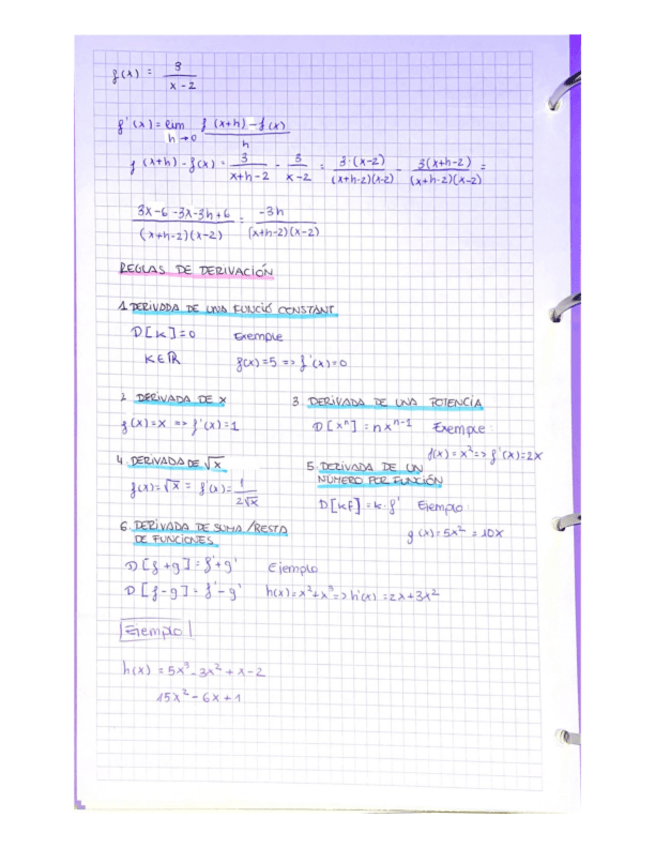 f(x) = 3/(x-2)
f'(x) = lim h→0 (f(x+h) - f(x))/h
f(x+h) - f(x) = 3/(x+h-2) - 3/(x-2) = 3·(x-2)/((x+h-2)(x-2)) - 3(x+h-2)/((x+h-2)(x-2)) =
(3x-6-3x-3h+6)/((x+h-2)(x-2)) = -3h/((x+h-2)(x-2))
REGLAS DE DERIVACIÓN
1. DERIVADA DE UNA FUNCIÓ CONSTANT
D[K]=0 Exemple
K∈ℝ f(x)=5 => f'(x)=0
2. DERIVADA DE X
f(x)=x => f'(x)=1
3. DERIVADA DE UNA POTENCIA
D[xⁿ] = nxⁿ⁻¹ Exemple:
f(x) = x² => f'(x)=2x
4. DERIVADA DE √x
f(x)=√x = f'(x)= 1/(2√x)
5. DERIVADA DE UN
NÚMERO POR FUNCIÓN
D[kf] = k·f' Ejemplo:
g(x)=5x² = 10x
6. DERIVADA DE SUMA/RESTA
DE FUNCIONES
D[f+g] = f'+g' Ejemplo
D[f-g] = f'-g' h(x)=x²+x³ => h'(x) = 2x+3x²
Ejemplo
h(x) = 5x³-3x²+x-2
15x²-6x+1